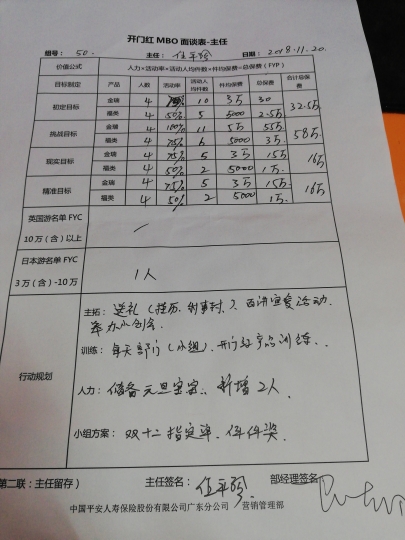 开门红 MBO 面谈表-主任
组号: 50. 主任: 任平玲 日期: 2018.11.20.
价值公式 人力×活动率×活动人均件数×件均保费=总保费(FYP)
目标制定 产品 人数 活动率 活动人均件数 件均保费 总保费 合计总保费
初定目标 金瑞 4 10 3万 30 32.5万
福类 4 50% 5 5000 2.5万
挑战目标 金瑞 4 100% 11 5万 55万 58万
福类 4 75% 6 5000 3万
现实目标 金瑞 4 75% 5 3万 15万 16万
福类 4 50% 2 5000 1万
精准目标 金瑞 4 75% 5 3万 15万 16万
福类 4 50% 2 5000 1万
英国游名单 FYC
10 万(含)以上 /
日本游名单 FYC
3 万(含)-10万 1人
行动规划
主拓: 送礼(挂历、
活动、
训练: 每天部门(小组)、开门红产品训练、
人力: 储备元旦 新增2人
小组方案: 双十二指定单、件件奖、
第二联:主任留存) 主任签名: 任平玲 部经理签名
中国平安人寿保险股份有限公司广东分公司 营销管理部